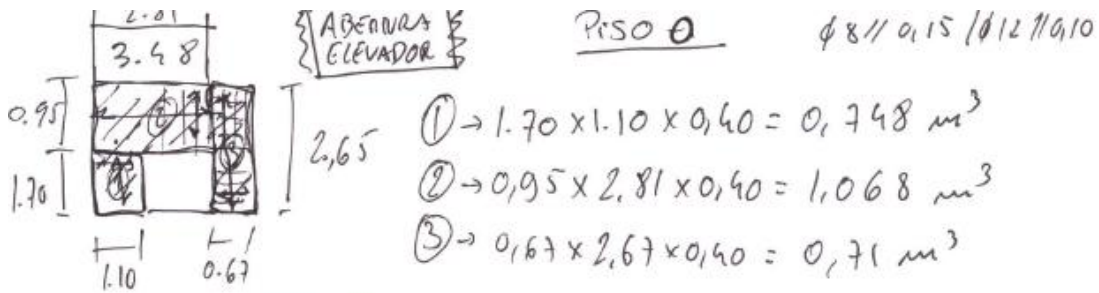 2.81
3.48
ABERTURA
ELEVADOR
PISO 0
ϕ8//0,15/ϕ12//0,10
0.95
1.70
2,65
1.10
0.67
② ① ③
① → 1.70 x 1.10 x 0,40 = 0,748 m³
② → 0,95 x 2,81 x 0,40 = 1,068 m³
③ → 0,67 x 2,67 x 0,40 = 0,71 m³